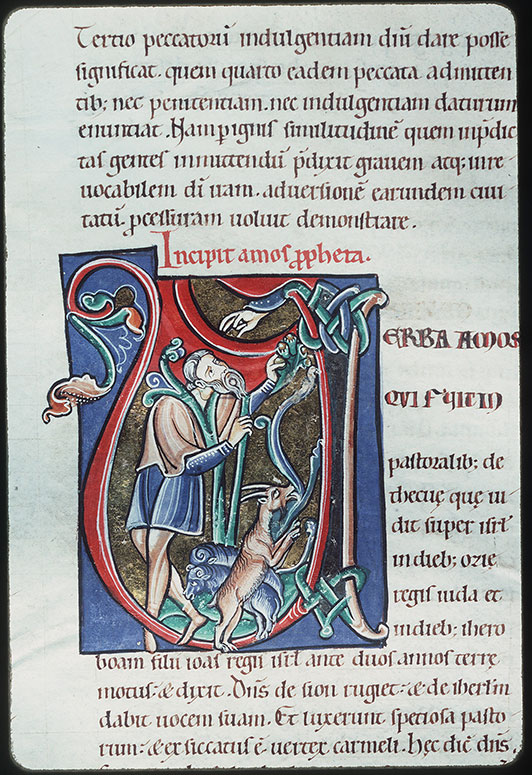 Tertio peccatorū indulgentiam dn̄m dare posse
significat. quem quarto eadem peccata admitten
tib; nec penitentiam. nec indulgentiam daturum
enuntiat. Nam ꝑ ignis similitudinē quem in p̄dic
tas gentes inmittendū p̄dixit grauem atq; irre
uocabilem dī iram. aduersionē earundem ciui
tatū ꝓcessuram uoluit demonstrare.
Incipit amos ꝓpheta.
ERBA AMOS
QUI FUIT IN
pastoralib; de
thecue que ui
dit super isrl̄
in dieb; ozie
regis iuda et
in dieb; ihero
boam filii ioas regis isrl̄ ante duos annos terre
motus. & dixit. Dn̄s de sion rugiet. & de iherl̄m
dabit uocem suam. Et luxerunt speciosa pasto
rum. & exsiccatus ē uertex carmeli. Hec dic̄ dn̄s.